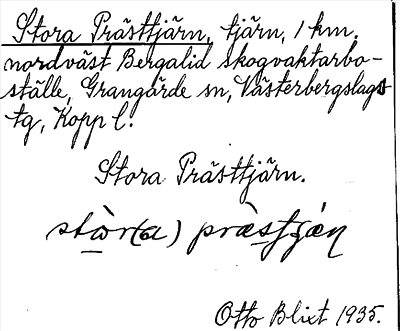 Stora Prästtjärn, tjärn, 1 km.
nordväst Bergalid skogvaktarbo-
ställe, Grangärde sn, Västerbergslags
tg, Kopp l.
Stora Prästtjärn.
stòr(a)
Otto Blixt 1935.